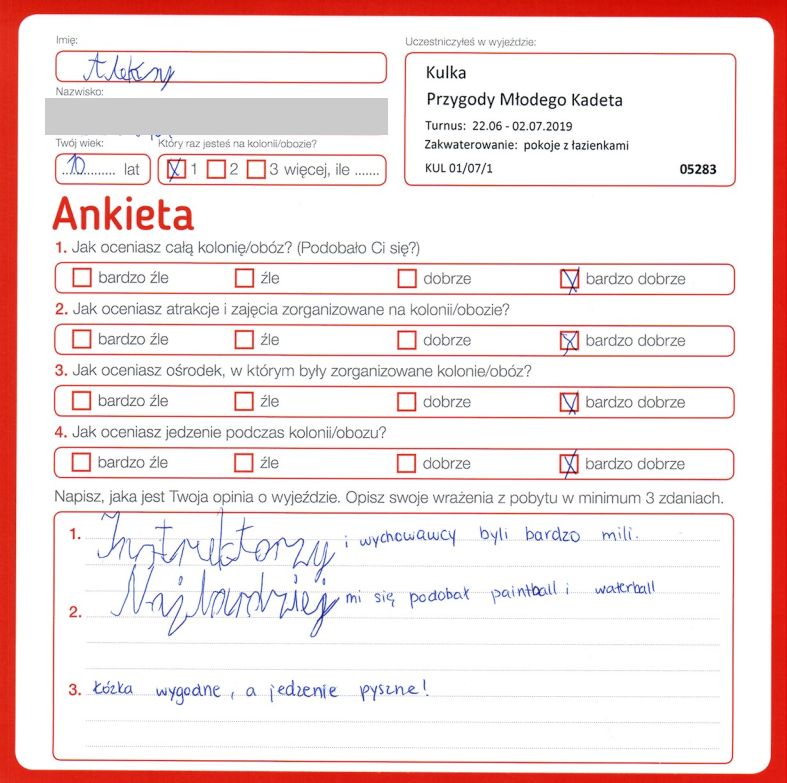 Imię:
Aleksy
Nazwisko:
Twój wiek:
10 lat
Który raz jesteś na kolonii/obozie?
X 1 2 3 więcej, ile .......
Uczestniczyłeś w wyjeździe:
Kulka
Przygody Młodego Kadeta
Turnus: 22.06 - 02.07.2019
Zakwaterowanie: pokoje z łazienkami
KUL 01/07/1 05283
Ankieta
1. Jak oceniasz całą kolonię/obóz? (Podobało Ci się?)
bardzo źle źle dobrze X bardzo dobrze
2. Jak oceniasz atrakcje i zajęcia zorganizowane na kolonii/obozie?
bardzo źle źle dobrze X bardzo dobrze
3. Jak oceniasz ośrodek, w którym były zorganizowane kolonie/obóz?
bardzo źle źle dobrze X bardzo dobrze
4. Jak oceniasz jedzenie podczas kolonii/obozu?
bardzo źle źle dobrze X bardzo dobrze
Napisz, jaka jest Twoja opinia o wyjeździe. Opisz swoje wrażenia z pobytu w minimum 3 zdaniach.
1. Instruktorzy i wychowawcy byli bardzo mili.
2. Najbardziej mi się podobał paintball i waterball
3. Łóżka wygodne, a jedzenie pyszne!